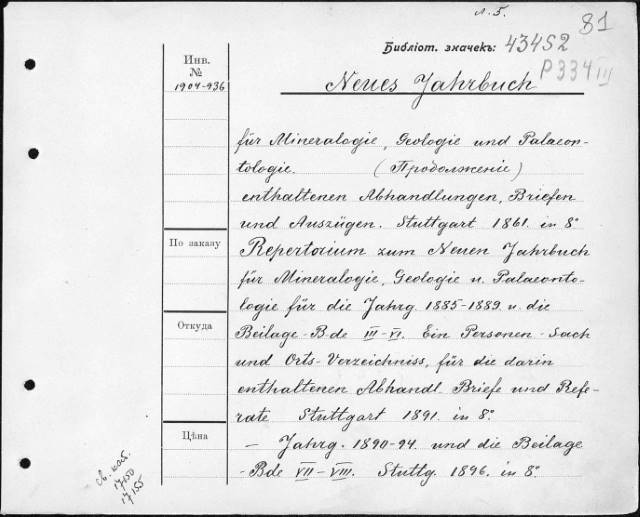 л. 5.
81
Библіот. значекъ: 43452
P334 III
Инв.
№
1904-936
Neues Jahrbuch
für Mineralogie, Geologie und Palaeon-
tologie. (Продолженіе)
enthaltenen Abhandlungen, Briefen
und Auszügen. Stuttgart 1861. in 8°
По заказу
Repertorium zum Neuen Jahrbuch
für Mineralogie, Geologie u. Palaeonto-
logie für die Jahrg. 1885-1889. u. die
Откуда
Beilage-Bde III-VI. Ein Personen-Sach
und Orts-Verzeichniss, für die darin
enthaltenen Abhandl. Briefe und Refe-
rate Stuttgart 1891. in 8°
Цѣна
— Jahrg. 1890-94. und die Beilage
-Bde VII-VIII. Stuttg. 1896. in 8°
св. каб.
1750
17155